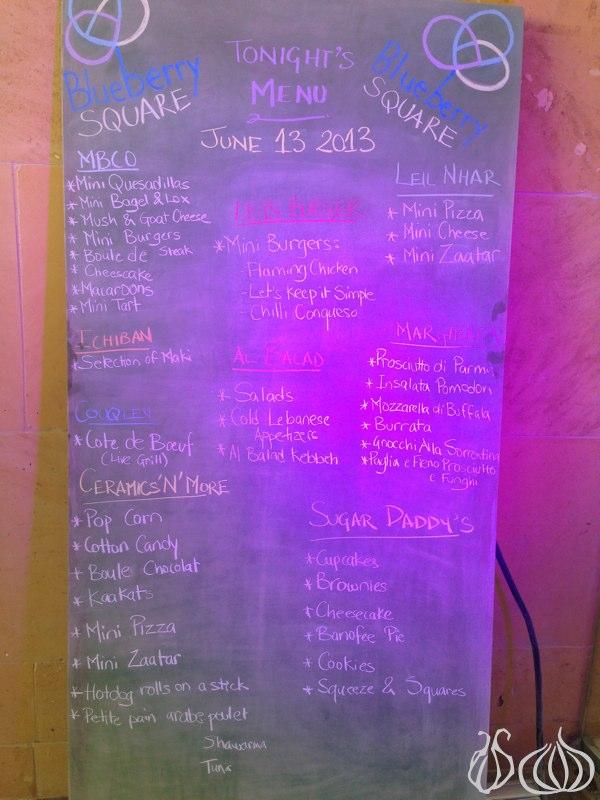 Blueberry
SQUARE
TONIGHT'S
MENU
JUNE 13 2013
Blueberry
SQUARE
MBCO
* Mini Quesadillas
* Mini Bagel & Lox
* Mush & Goat Cheese
* Mini Burgers
* Boule de Steak
* Cheescake
* Macaroons
* Mini Tart
ICHIBAN
* Selection of Maki
COUQLEY
* Cote de Bœuf
(Live Grill)
CERAMICS 'N' MORE
* Pop Corn
* Cotton Candy
+ Boule Chocolat
* Kaakats
* Mini Pizza
* Mini Zaatar
* Hotdog rolls on a stick
* Petite pain arabe poulet
Shawarma
Tuna
* Mini Burgers:
- Flaming Chicken
- Let's Keep it Simple
- Chilli Conqueso
AL BALAD
* Salads
* Cold Lebanese
Appetizers
* Al Balad Kebbeh
LEIL NHAR
* Mini Pizza
* Mini Cheese
* Mini Zaatar
* Prosciutto di Parma
* Insalata Pomodori
* Mozzarella di Buffala
* Burrata
* Gnocchi Alla Sorrentina
* Paglia e Fieno Prosciutto
e Funghi
SUGAR DADDY'S
* Cupcakes
* Brownies
* Cheesecake
* Banofee Pie
* Cookies
* Squeeze & Squares